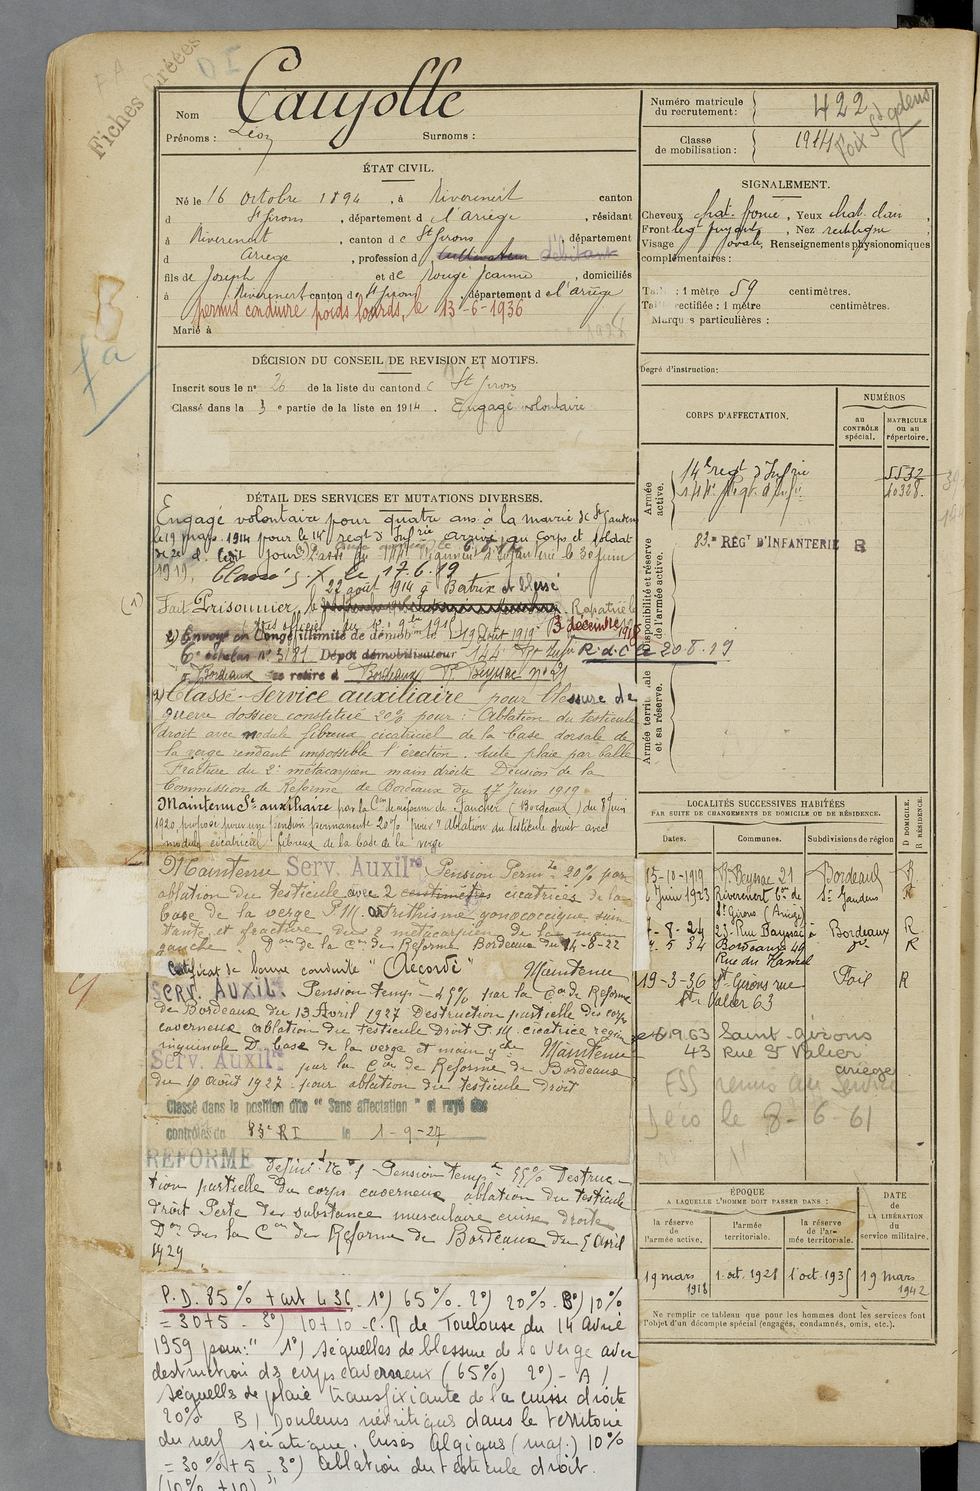 Fiches Créées
Nom Caujolle
Prénoms : Léon Surnoms :
ÉTAT CIVIL.
Né le 16 Octobre 1894, à Riverenert canton
d St Girons, département d e l'Ariège, résidant
à Riverenert, canton d e St Girons, département
d Ariège, profession d Cultivateur débitant
fils de Joseph et de Rougé Jeanne, domiciliés
à Riverenert canton de St Girons, département d e l'Ariège
permis conduire poids lourds, le 13-6-1936
Marié à
DÉCISION DU CONSEIL DE REVISION ET MOTIFS.
Inscrit sous le n° 20 de la liste du canton d e St Girons
Classé dans la 3 e partie de la liste en 1914. Engagé volontaire
DÉTAIL DES SERVICES ET MUTATIONS DIVERSES.
Engagé volontaire pour quatre ans à la mairie de St Gaudens
le 19 mars 1914 pour le 14e regt d'Infrie arrivé au corps et soldat
de 2e cl. ledit jour. Passé au 144e Régiment d'Infanterie le 30 juin
1919. Classé S. X. le 17.6.19
22 août 1914 à Bertrix et blessé
(1) Fait Prisonnier le Rapatrié le
3 décembre 1918
2) Envoyé en Congé illimité de démobon le 19 août 1919
6e échelon n° 3181 Dépôt démobilisateur 144e Rt Infrie R.d.C. le 20.8.19
à Bordeaux se retire à Bordeaux R. Beyssac n° 21
Classé Service auxiliaire pour blessure de
guerre dossier constitué 20% pour : Ablation du testicule
droit avec nodule fibreux cicatriciel de la base dorsale de
la verge rendant impossible l'érection. Suite plaie par balle
Fracture du 2e métacarpien main droite Décision de la
Commission de Réforme de Bordeaux du 17 Juin 1919
Maintenu Sce auxiliaire par la Con de réforme de Faucher (Bordeaux) du 8 Juin
1920, proposé pour une pension permanente 20% pour "Ablation du testicule droit avec
nodule cicatriciel fibreux de la base de la verge
Maintenu Serv. Auxilre Pension Permte 20% par
ablation du testicule avec 2 centimètres cicatrices de la
base de la verge P.M. Arthritisme gonococcique suin-
tante, et fracture du 2e métacarpien de la main
gauche. Don de la Con de Réforme Bordeaux du 14-8-22
Certificat de bonne conduite "Accordé" Maintenu
SERV. AUXIL. Pension tempre 25% par la Con de Réforme
de Bordeaux du 13 Avril 1927 Destruction partielle des corps
caverneux ablation du testicule Droit P.M. cicatrice région
inguinale D. base de la verge et main gche Maintenu
Serv. Auxilre par la Con de Réforme de Bordeaux
du 10 Août 1927 pour ablation du testicule Droit
Classé dans la position dite "Sans affectation" et rayé des
contrôles du 83e RI le 1-9-27
RÉFORMÉ Définit. N° 1 Pension tempre 55% Destruc-
tion partielle du corps caverneux, ablation du testicule
droit Perte de substance musculaire cuisse droite
Don de la Con de Réforme de Bordeaux du 5 Avril
1929
P.D. 85% + art 4 36 1°) 65% - 2°) 20% - 3°) 10%
= 30+5 - 3°) 10+10 - C.R de Toulouse du 14 Avril
1959 pour : " 1°) Séquelles de blessure de la verge avec
destruction des corps caverneux (65%) 2°) - A)
Séquelles de plaie transfixiante de la cuisse droite
20% B) Douleurs névritiques dans le territoire
du nerf sciatique. Crises Algiques (maj.) 10%
= 30% + 5 - 3°) Ablation du testicule droit.
(10% + 10)
Numéro matricule du recrutement : 422
Classe de mobilisation : 1914
Foix St Gaudens
SIGNALEMENT.
Cheveux chat. foncé, Yeux chat. clair,
Front legt fuyant, Nez rectiligne,
Visage ovale, Renseignements physionomiques
complémentaires :
Taille : 1 mètre 59 centimètres.
Taille rectifiée : 1 mètre centimètres.
Marques particulières :
Degré d'instruction:
CORPS D'AFFECTATION.
NUMÉROS
au CONTRÔLE spécial.
MATRICULE ou au répertoire.
Armée active.
14e regt d'Infrie 5532
144e Regt d'Infie 10328.
Disponibilité et réserve de l'armée active.
83me RÉGt D'INFANTERIE B
Armée territoriale et sa réserve.
LOCALITÉS SUCCESSIVES HABITÉES
PAR SUITE DE CHANGEMENTS DE DOMICILE OU DE RÉSIDENCE.
Dates. Communes. Subdivisions de région D DOMICILE. R RÉSIDENCE.
15-10-1919 R. Beyssac 21 Bordeaux R
6 Juin 1923 Riverenert Con de St Girons (Ariège) St Gaudens R
7-8-24 23 Rue Beyssac à Bordeaux R
4-5-34 Bordeaux 49 Rue du Hamel do R
19-3-36 St Girons rue St Valier 63 Foix R
9.63 Saint-Girons
43 Rue St Valier
Ariège
FSS remis au Service
Déco le 8-6-61
ÉPOQUE
A LAQUELLE L'HOMME DOIT PASSER DANS :
la réserve de l'armée active.
l'armée territoriale.
la réserve de l'armée territoriale.
DATE de LA LIBÉRATION du service militaire.
19 mars 1918
1. oct. 1928
1 oct. 1935
19 mars 1942
Ne remplir ce tableau que pour les hommes dont les services font
l'objet d'un décompte spécial (engagés, condamnés, omis, etc.).